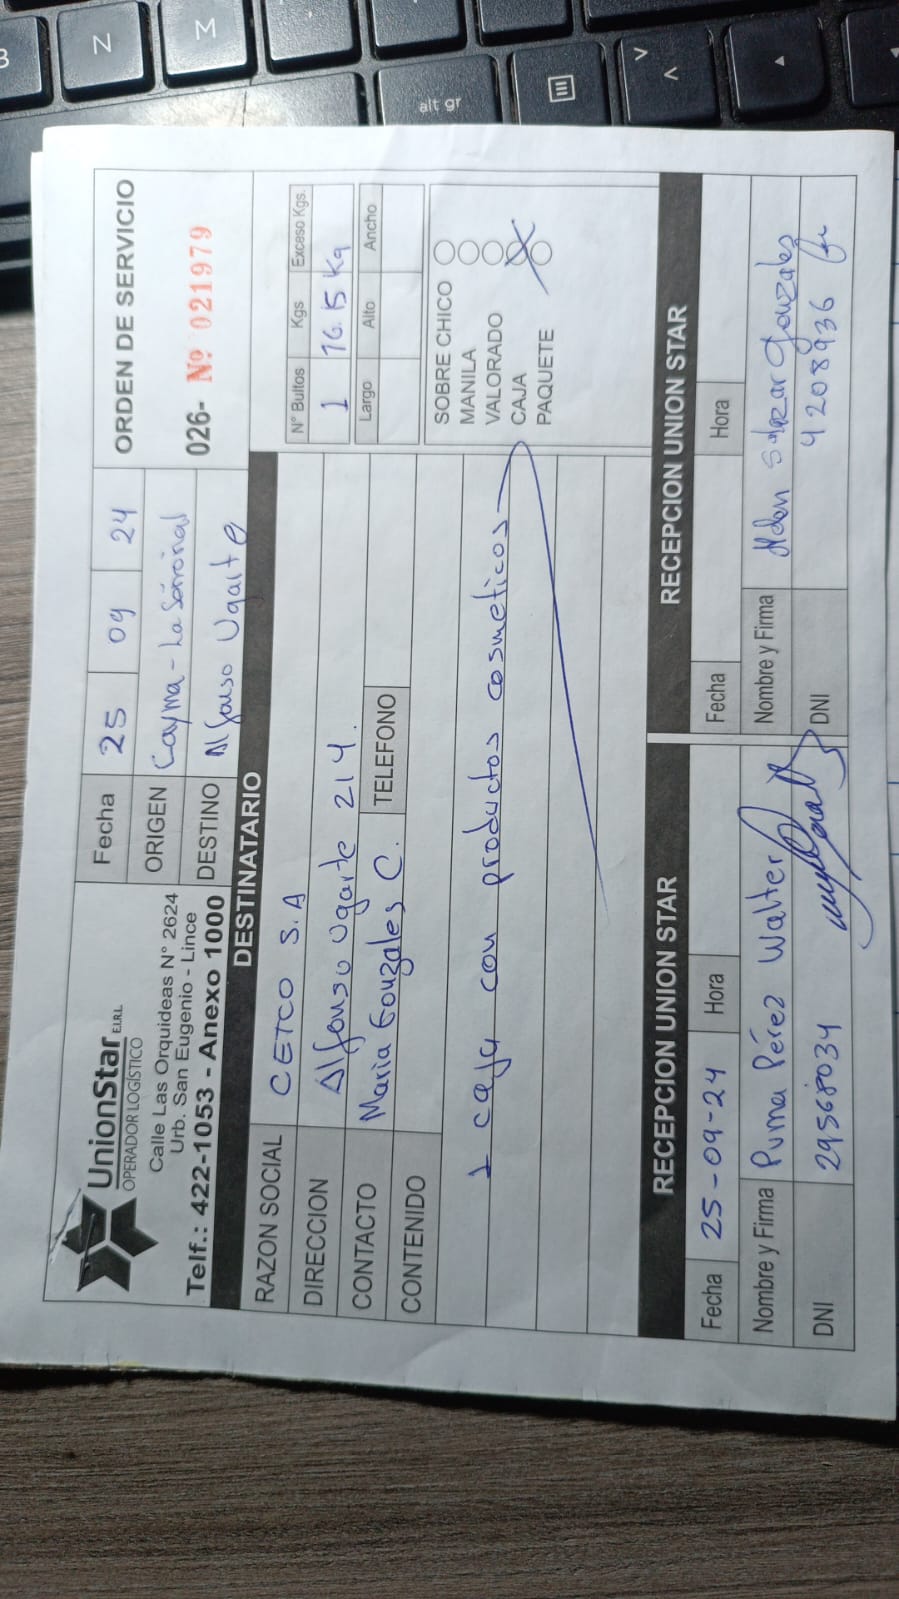 UnionStar E.I.R.L.
OPERADOR LOGÍSTICO
Calle Las Orquideas N° 2624
Urb. San Eugenio - Lince
Telf.: 422-1053 - Anexo 1000
Fecha 25 09 24
ORIGEN Cayma - La
DESTINO Alfonso Ugarte
ORDEN DE SERVICIO
026- Nº 021979
DESTINATARIO
RAZON SOCIAL CETCO S.A
DIRECCION Alfonso Ugarte 214.
CONTACTO Maria Gonzales C. TELEFONO
CONTENIDO
1 caja con productos cosmeticos
N° Bultos Kgs Exceso Kgs.
1 16.15 Kg
Largo Alto Ancho
SOBRE CHICO
MANILA
VALORADO
CAJA
PAQUETE
RECEPCION UNION STAR
Fecha 25-09-24 Hora
Nombre y Firma Puma Pérez Walter
DNI 29568034
RECEPCION UNION STAR
Fecha Hora
Nombre y Firma Salazar Gonzales
DNI 4208936
B
N
M
alt gr